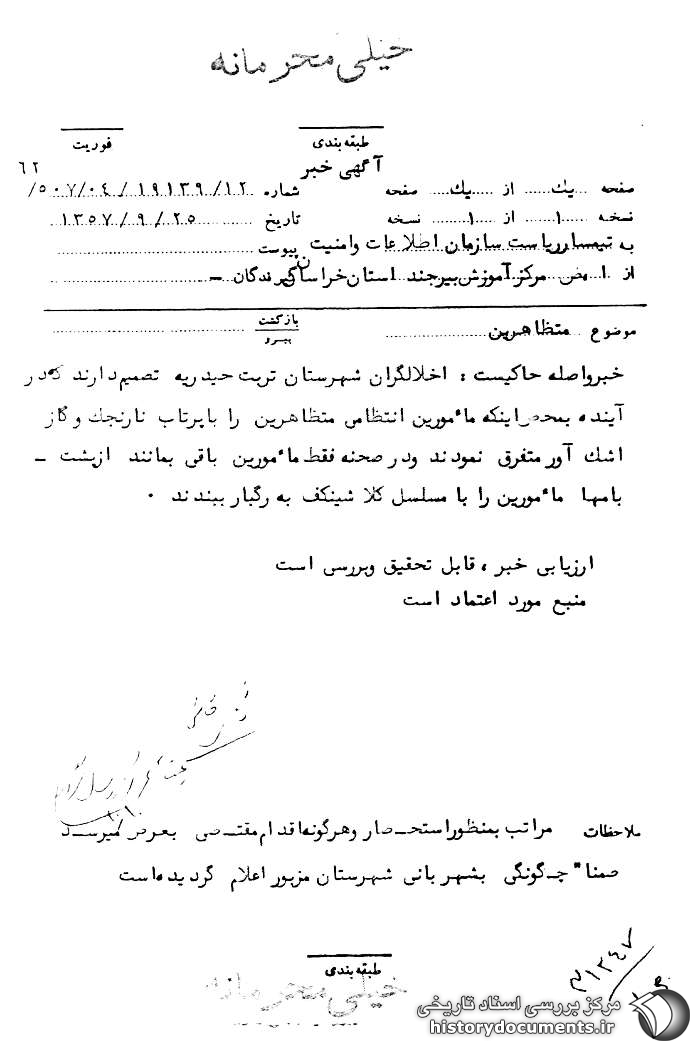 خیلی محرمانه
طبقه‌بندی
فوریت
آگهی خبر
۶۲
صفحه یک از یک صفحه
شماره ۱۹۱۳۹/۱۲ /۵۰۷/۰۴/
نسخه ۱ از ۱ نسخه
تاریخ ۱۳۵۷/۹/۲۵
به تیمسار ریاست سازمان اطلاعات وامنیت
پیوست
از مرکز آموزش بیرجند استان خراسان گیرندگان –
موضوع متظاهرین
بازگشت
پیرو
خبرواصله حاکیست : اخلالگران شهرستان تربت حیدریه تصمیم دارند که در
آینده بمحض اینکه مأمورین انتظامی متظاهرین را با پرتاب نارنجک و گاز
اشک آور متفرق نمودند ودر صحنه فقط مأمورین باقی بمانند ازپشت –
بامها مأمورین را با مسلسل کلاشینکف به رگبار ببندند ۰
ارزیابی خبر ، قابل تحقیق وبررسی است
منبع مورد اعتماد است
ملاحظات مراتب بمنظوراستحضار وهرگونه اقدام مقتضی بعرض میرسد
ضمنا" چگونگی بشهربانی شهرستان مزبور اعلام گردیده است
طبقه بندی
خیلی محرمانه
۳۱۲۴۷
مرکز بررسی اسناد تاریخی
historydocuments.ir